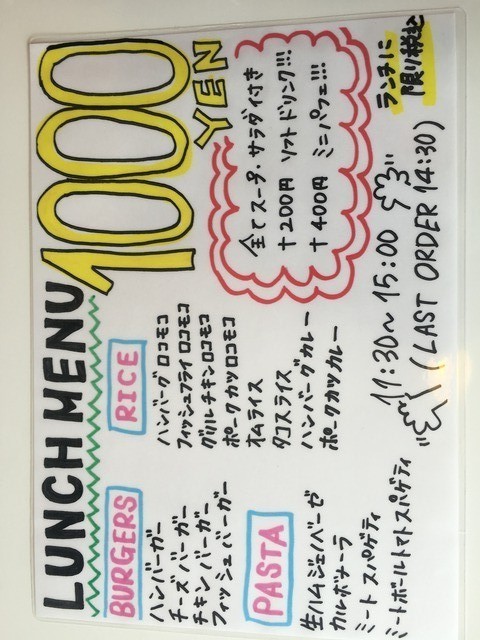 LUNCH MENU 1000 YEN
BURGERS
ハンバーガー
チーズバーガー
チキンバーガー
フィッシュバーガー
RICE
ハンバーグロコモコ
フィッシュフライロコモコ
グリルチキンロコモコ
ポークカツロコモコ
オムライス
タコスライス
ハンバーグカレー
ポークカツカレー
全てスープ・サラダ付き
+200円 ソフトドリンク!!!
+400円 ミニパフェ!!!
PASTA
生ハムジェノベーゼ
カルボナーラ
ミートスパゲティ
ミートボールトマトスパゲティ
11:30~15:00
(LAST ORDER 14:30)
ランチに
限り税込